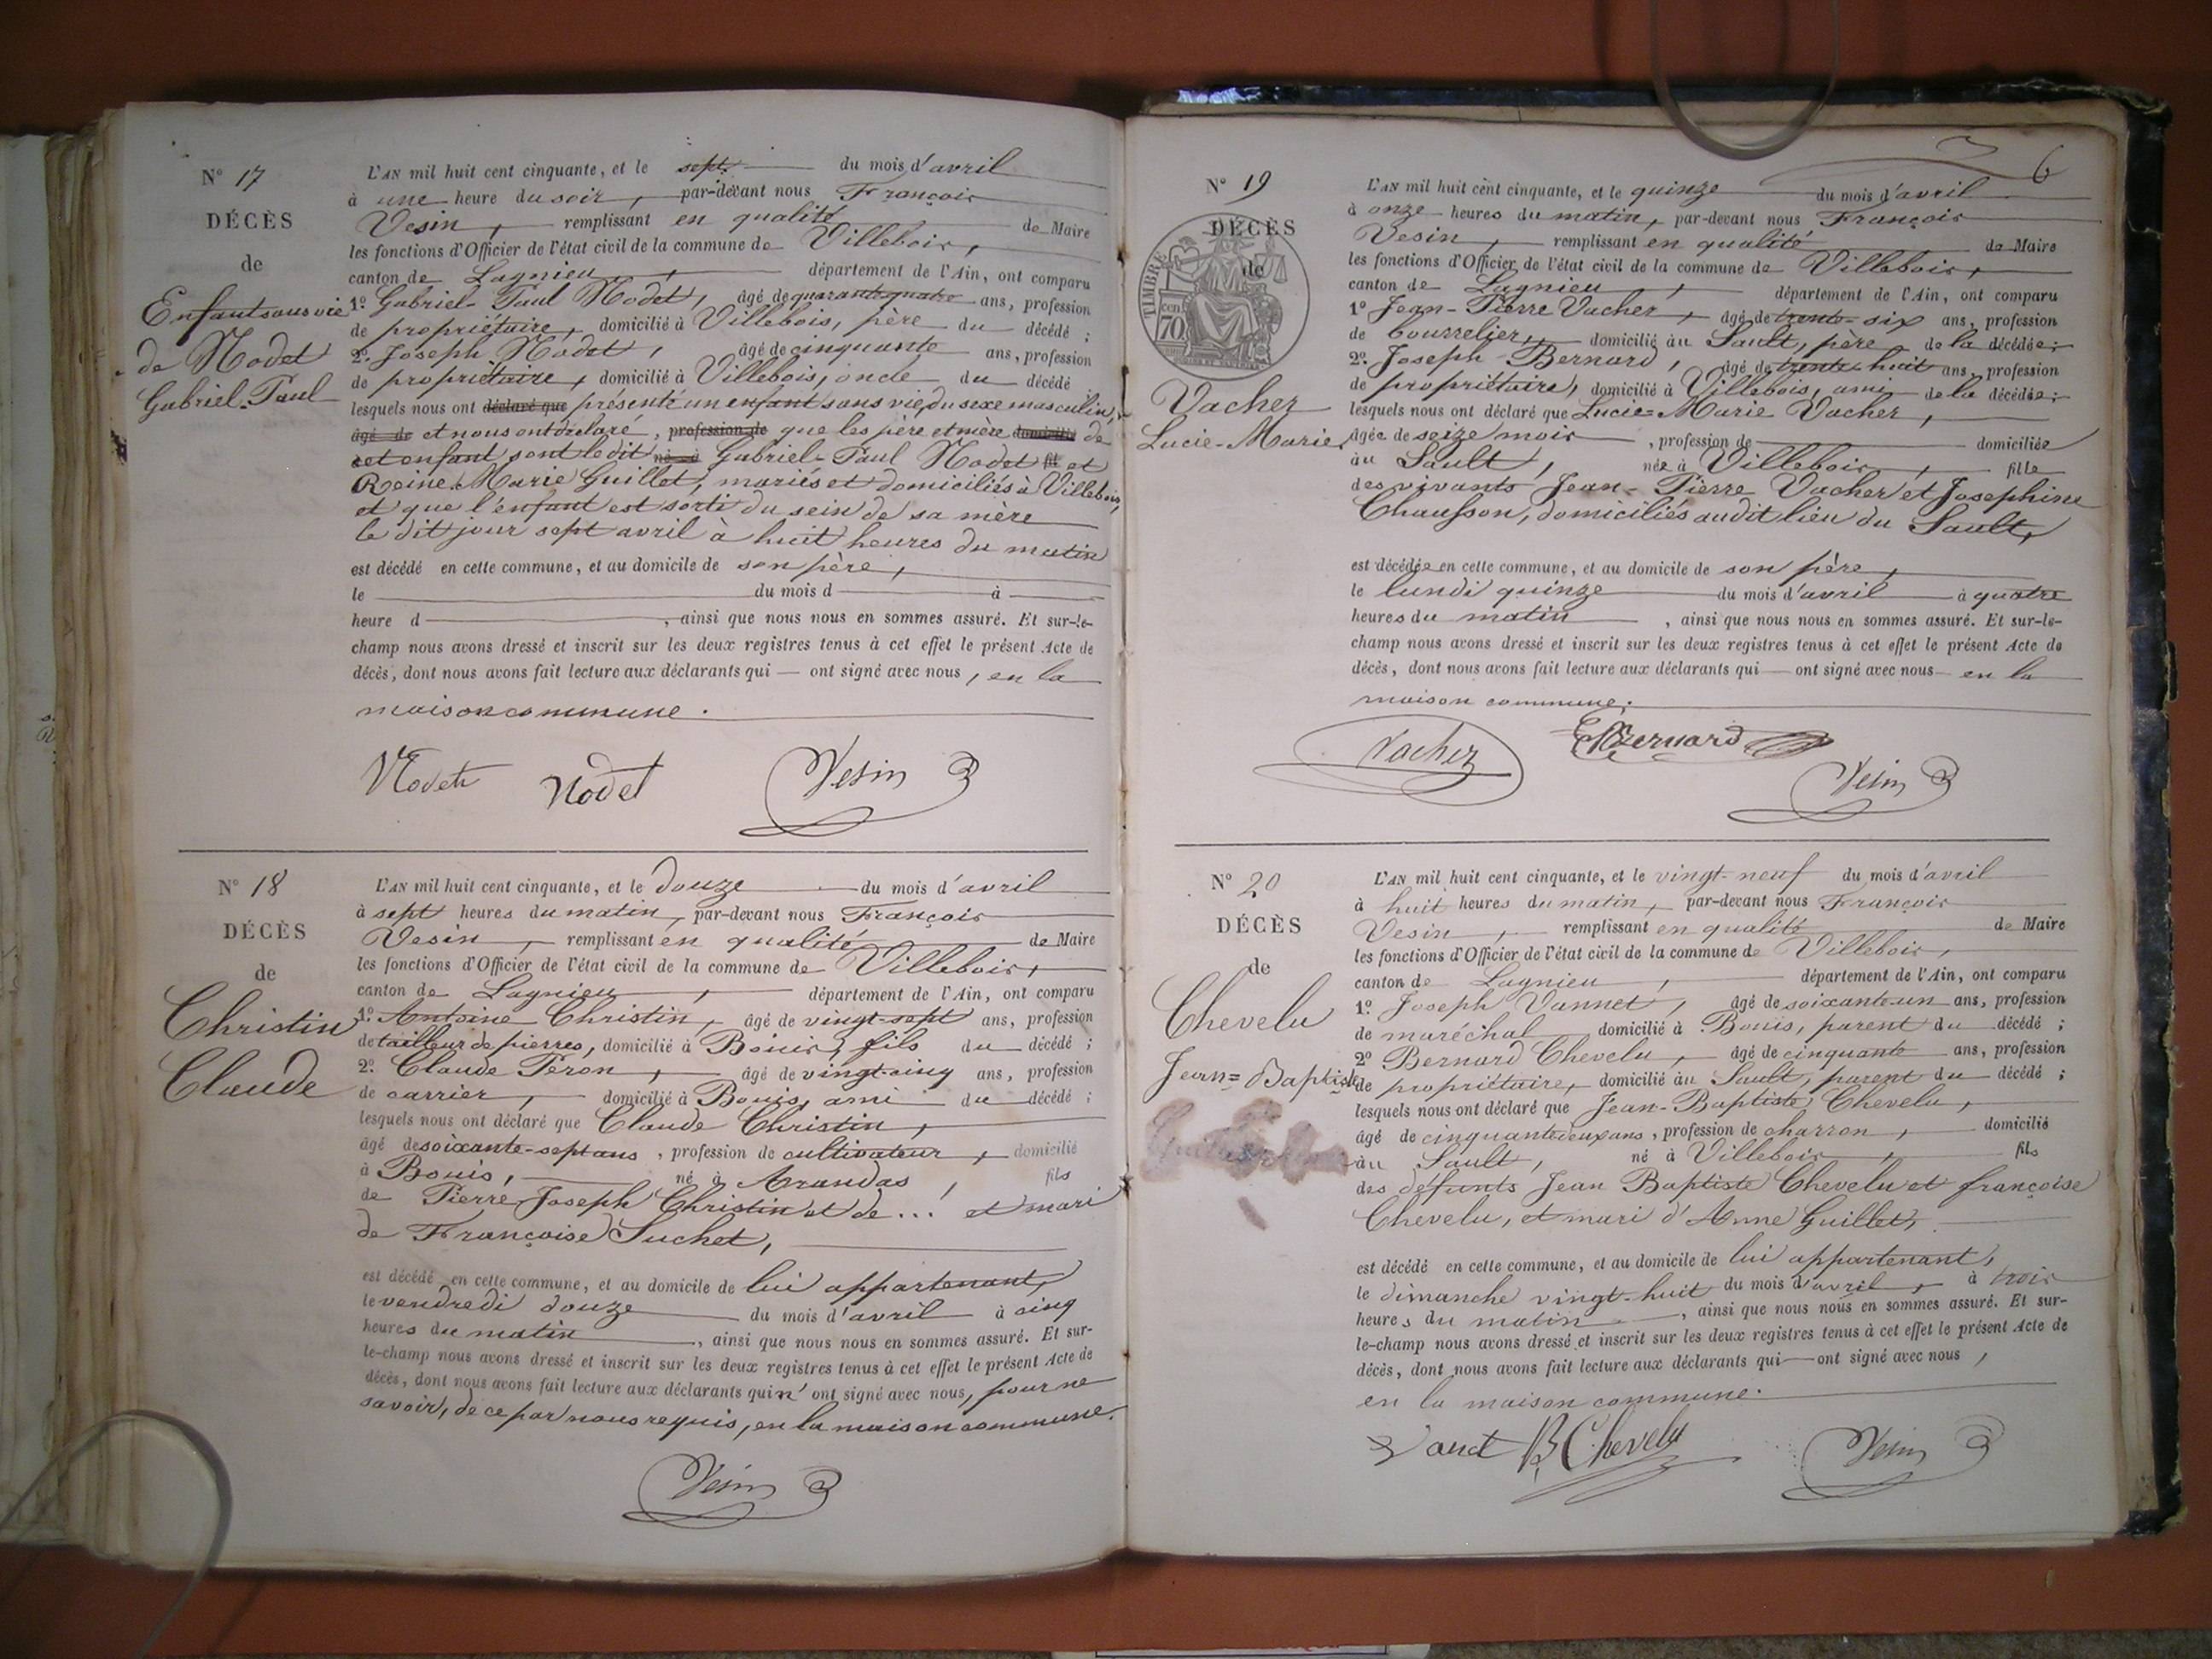 N° 17
DÉCÈS
de
Enfant sans vie
de Nodet
Gabriel-Paul
L'AN mil huit cent cinquante, et le sept du mois d'avril
à une heure du soir, par-devant nous François
Vesin, remplissant en qualité de Maire
les fonctions d'Officier de l'état civil de la commune de Villebois,
canton de Lagnieu, département de l'Ain, ont comparu
1° Gabriel-Paul Nodet, âgé de quarante-quatre ans, profession
de propriétaire, domicilié à Villebois, père du décédé ;
2° Joseph Nodet, âgé de cinquante ans, profession
de propriétaire, domicilié à Villebois, oncle du décédé
lesquels nous ont déclaré que présenté un enfant sans vie, du sexe masculin,
âgé de et nous ont déclaré, profession de que les père et mère domicilié de
cet enfant sont le dit né à Gabriel-Paul Nodet fil et
Reine-Marie Guillet, mariés et domiciliés à Villebois,
et que l'enfant est sorti du sein de sa mère
le dit jour sept avril à huit heures du matin
est décédé en cette commune, et au domicile de son père,
le du mois d à
heure d , ainsi que nous nous en sommes assuré. Et sur-le-
champ nous avons dressé et inscrit sur les deux registres tenus à cet effet le présent Acte de
décès, dont nous avons fait lecture aux déclarants qui — ont signé avec nous, en la
maison commune.
Nodet Nodet Vesin
N° 18
DÉCÈS
de
Christin
Claude
L'AN mil huit cent cinquante, et le douze du mois d'avril
à sept heures du matin, par-devant nous François
Vesin, remplissant en qualité de Maire
les fonctions d'Officier de l'état civil de la commune de Villebois,
canton de Lagnieu, département de l'Ain, ont comparu
1° Antoine Christin, âgé de vingt-sept ans, profession
de tailleur de pierres, domicilié à Bouis, fils du décédé ;
2° Claude Péron, âgé de vingt-cinq ans, profession
de carrier, domicilié à Bouis, ami du décédé ;
lesquels nous ont déclaré que Claude Christin,
âgé de soixante-sept ans, profession de cultivateur, domicilié
à Bouis, né à Arandas, fils
de Pierre-Joseph Christin et de ... et mari
de Françoise Suchet,
est décédé en cette commune, et au domicile de lui appartenant,
le vendredi douze du mois d'avril à cinq
heures du matin, ainsi que nous nous en sommes assuré. Et sur-
le-champ nous avons dressé et inscrit sur les deux registres tenus à cet effet le présent Acte de
décès, dont nous avons fait lecture aux déclarants qui n'ont signé avec nous, pour ne
savoir, de ce par nous requis, en la maison commune.
Vesin
6
N° 19
DÉCÈS
de
TIMBRE
70 cen.
Vacher
Lucie-Marie
L'AN mil huit cent cinquante, et le quinze du mois d'avril
à onze heures du matin, par-devant nous François
Vesin, remplissant en qualité de Maire
les fonctions d'Officier de l'état civil de la commune de Villebois,
canton de Lagnieu, département de l'Ain, ont comparu
1° Jean-Pierre Vacher, âgé de trente-six ans, profession
de bourrelier, domicilié au Sault, père de la décédée ;
2° Joseph Bernard, âgé de trente-huit ans, profession
de propriétaire, domicilié à Villebois, ami de la décédée ;
lesquels nous ont déclaré que Lucie-Marie Vacher,
âgée de seize mois, profession de domiciliée
au Sault, née à Villebois, fille
des vivants Jean-Pierre Vacher et Josephine
Chausson, domiciliés au dit lieu du Sault,
est décédée en cette commune, et au domicile de son père,
le lundi quinze du mois d'avril à quatre
heures du matin, ainsi que nous nous en sommes assuré. Et sur-le-
champ nous avons dressé et inscrit sur les deux registres tenus à cet effet le présent Acte de
décès, dont nous avons fait lecture aux déclarants qui — ont signé avec nous en la
maison commune ;
Vacher Bernard Vesin
N° 20
DÉCÈS
de
Chevelu
Jean-Baptiste
L'AN mil huit cent cinquante, et le vingt-neuf du mois d'avril
à huit heures du matin, par-devant nous François
Vesin, remplissant en qualité de Maire
les fonctions d'Officier de l'état civil de la commune de Villebois,
canton de Lagnieu, département de l'Ain, ont comparu
1° Joseph Vannet, âgé de soixante-un ans, profession
de maréchal, domicilié à Bouis, parent du décédé ;
2° Bernard Chevelu, âgé de cinquante ans, profession
de propriétaire, domicilié au Sault, parent du décédé ;
lesquels nous ont déclaré que Jean-Baptiste Chevelu,
âgé de cinquante deux ans, profession de charron, domicilié
au Sault, né à Villebois, fils
des défunts Jean Baptiste Chevelu et françoise
Chevelu, et mari d'Anne Guillet,
est décédé en cette commune, et au domicile de lui appartenant,
le dimanche vingt-huit du mois d'avril, à trois
heures du matin, ainsi que nous nous en sommes assuré. Et sur-
le-champ nous avons dressé et inscrit sur les deux registres tenus à cet effet le présent Acte de
décès, dont nous avons fait lecture aux déclarants qui — ont signé avec nous,
en la maison commune.
B Chevelu Vesin